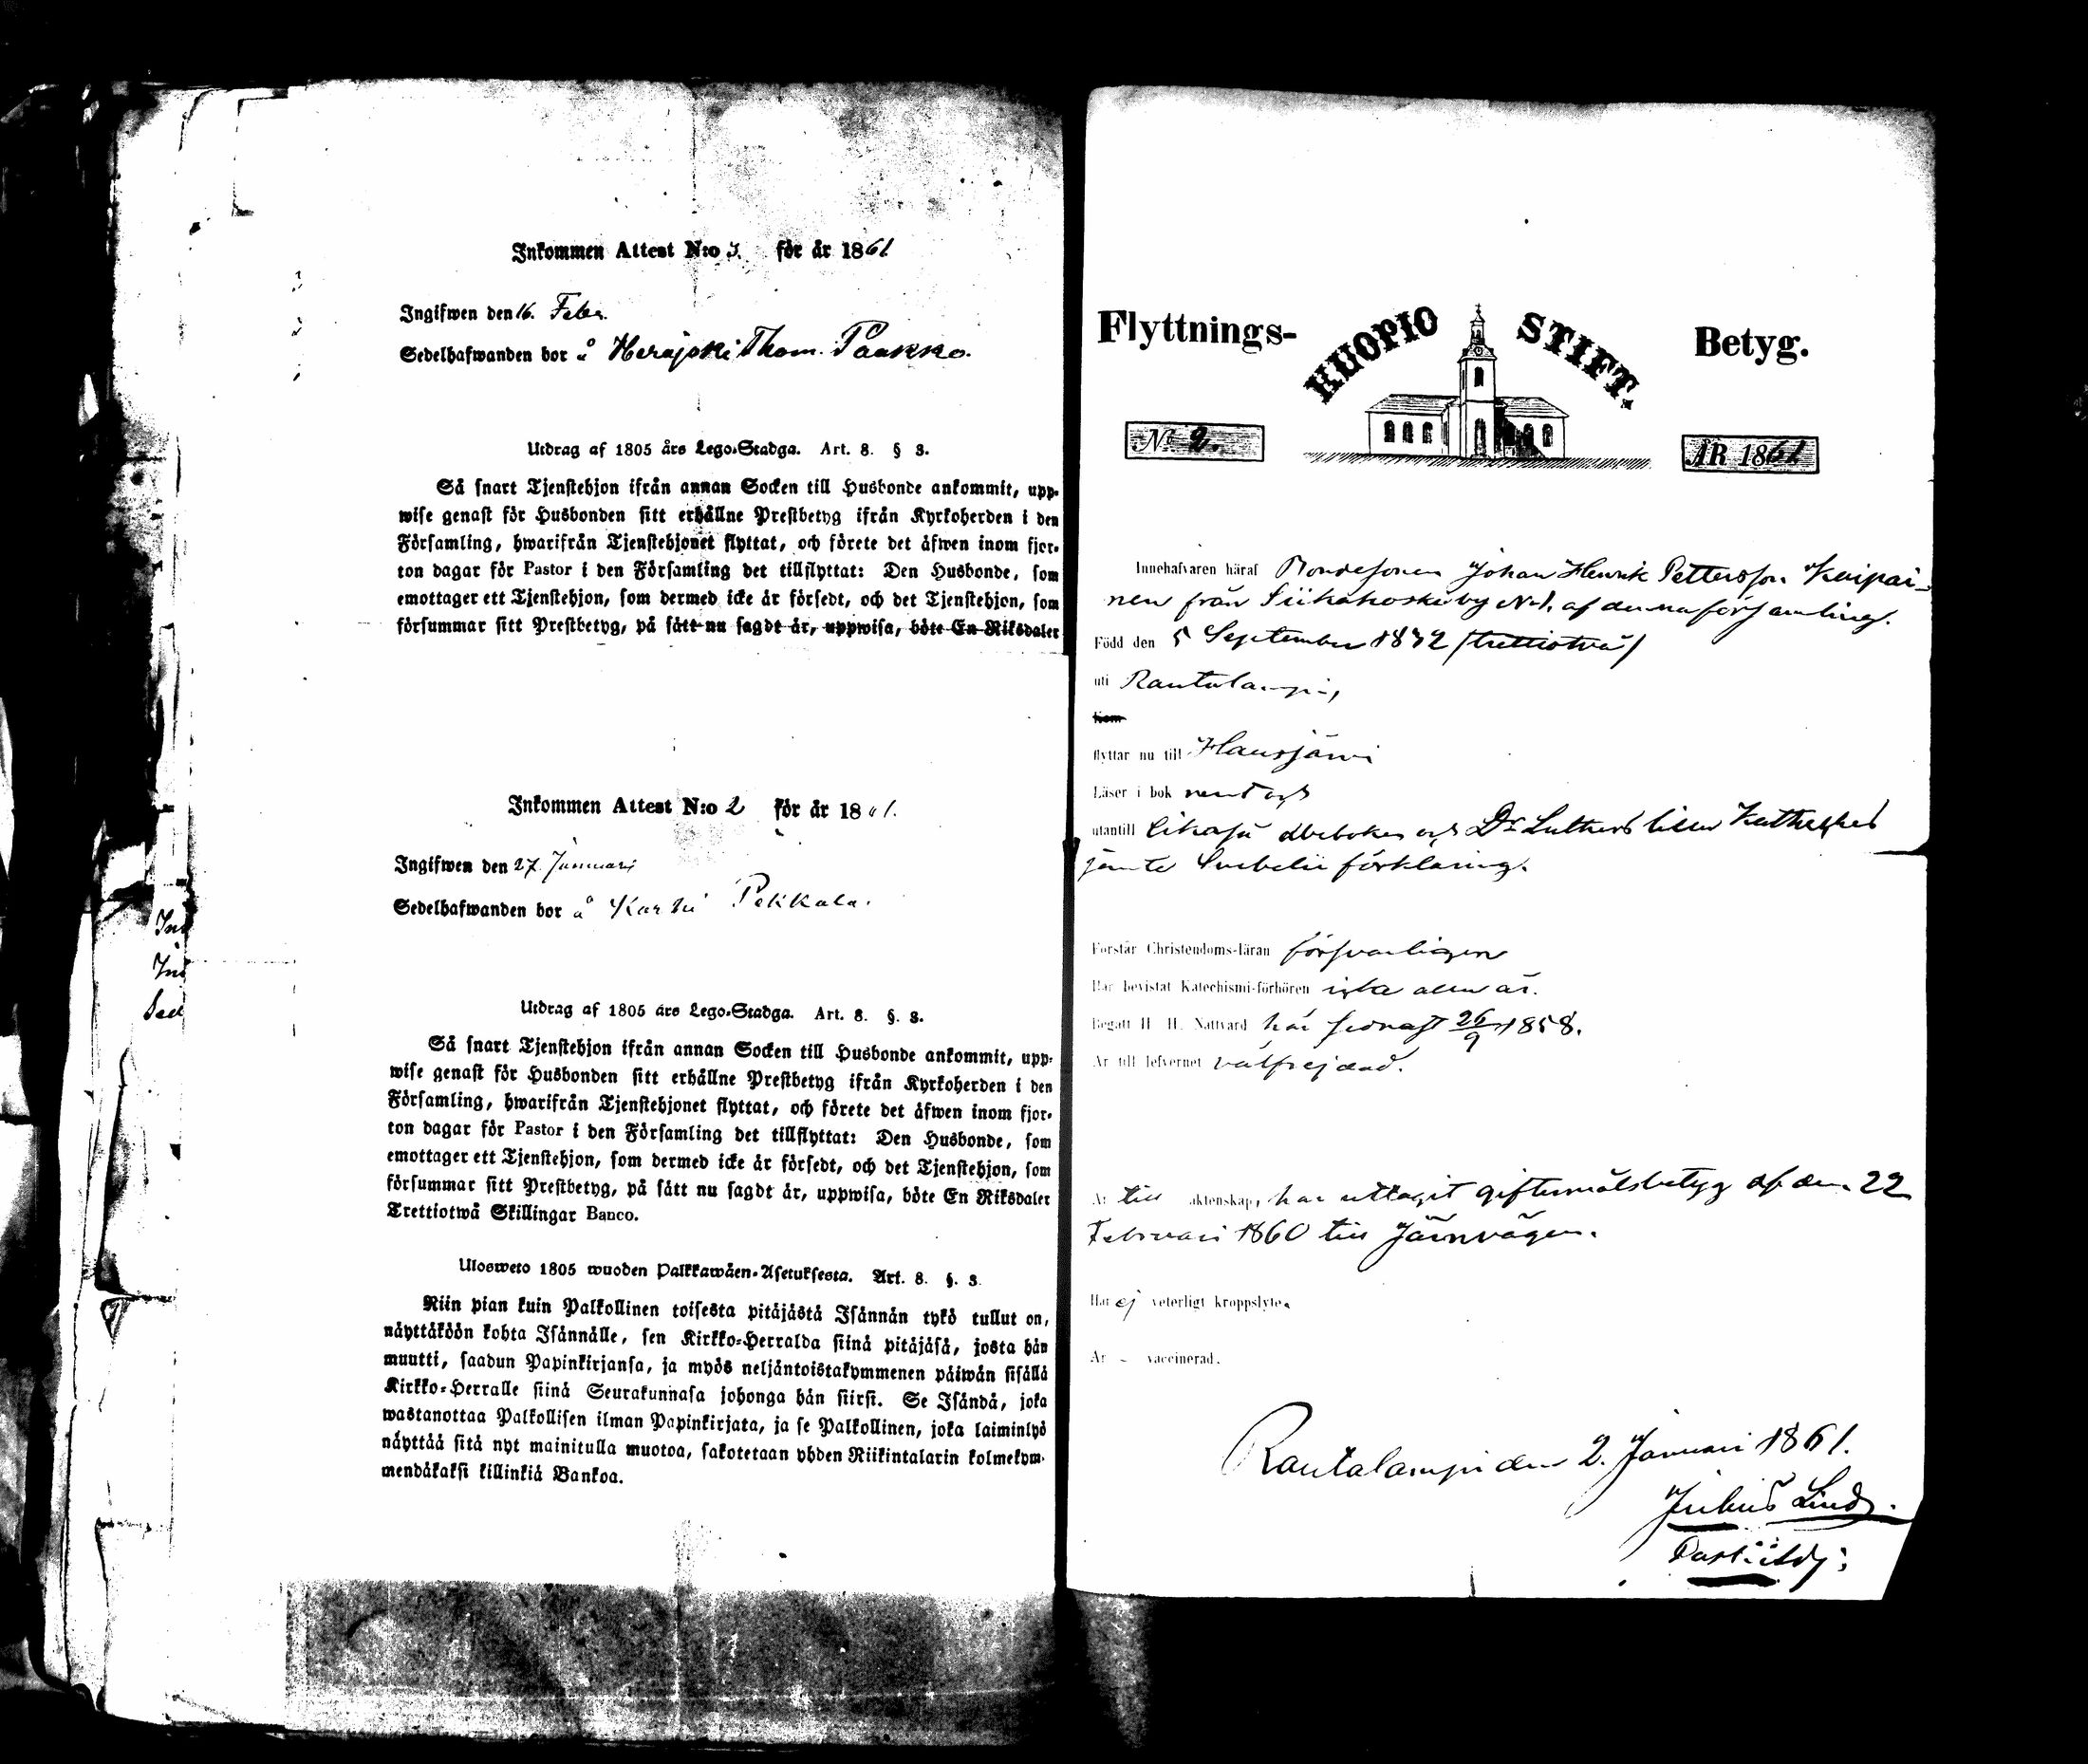 Inkommen Attest N:o 3. för år 1861
Ingifwen den 16. Febr.
Sedelhafwanden bor å Herajoki Thom. Paakko.
Utdrag af 1805 års Lego-Stadga. Art. 8. § 3.
Så snart Tjenstehjon ifrån annan Socken till Husbonde ankommit, upp-
wise genast för Husbonden sitt erhållne Prestbetyg ifrån Kyrkoherden i den
Församling, hwarifrån Tjenstehjonet flyttat, och förete det äfwen inom fjor-
ton dagar för Pastor i den Församling det tillflyttat: Den Husbonde, som
emottager ett Tjenstehjon, som dermed icke är försedt, och det Tjenstehjon, som
försummar sitt Prestbetyg, på sätt nu sagdt är, uppwisa, böte En Riksdaler
Inkommen Attest N:o 2 för år 1861.
Ingifwen den 27. Januari
Sedelhafwanden bor å Karhi Pekkala.
Utdrag af 1805 års Lego-Stadga. Art. 8. §. 3.
Så snart Tjenstehjon ifrån annan Socken till Husbonde ankommit, upp-
wise genast för Husbonden sitt erhållne Prestbetyg ifrån Kyrkoherden i den
Församling, hwarifrån Tjenstehjonet flyttat, och förete det äfwen inom fjor-
ton dagar för Pastor i den Församling det tillflyttat: Den Husbonde, som
emottager ett Tjenstehjon, som dermed icke är försedt, och det Tjenstehjon, som
försummar sitt Prestbetyg, på sätt nu sagdt är, uppwisa, böte En Riksdaler
Trettiotwå Skillingar Banco.
Ulosweto 1805 wuoden Palkkawäen-Asetuksesta. Art. 8. §. 3.
Niin pian kuin Palkollinen toisesta pitäjästä Isännän tykö tullut on,
näyttäköön kohta Isännälle, sen Kirkko-Herralda siinä pitäjäsä, josta hän
muutti, saadun Papinkirjansa, ja myös neljäntoistakymmenen päiwän sisällä
Kirkko-Herralle siinä Seurakunnasa johonga hän siirsi. Se Isändä, joka
wastanottaa Palkollisen ilman Papinkirjata, ja se Palkollinen, joka laiminlyö
näyttää sitä nyt mainitulla muotoa, sakotetaan yhden Riikintalarin kolmekym-
mendäkaksi killinkiä Bankoa.
Flyttnings- KUOPIO STIFT. Betyg.
No 2. ÅR 1861
Innehafvaren häraf Bondesonen Johan Henrik Pettersson Kaipai-
nen från Siikakoski by No 1, af denna församling.
Född den 5 September 1832 /trettiotvå/
uti Rautalampi,
Kom
flyttar nu till Hausjärvi
Läser i bok nentogt
utantill likaså abcboken och Dr Luthers lilla Kathekes
jemte Svebelii förklaring.
Förstår Christendoms-läran försvarligen
Har bevistat Katechismi-förhören icke alla år.
Begått H. H. Nattvard här sednast 26/9 1858.
Är till lefvernet välfrejdad.
Är till äktenskap, har uttagit giftermålsbetyg af den 22
Februari 1860 till Järnvägen.
Har ej veterligt kroppslyte.
Är – vaccinerad.
Rautalampi den 2. Januari 1861.
Julius Lind.
Past: adj: